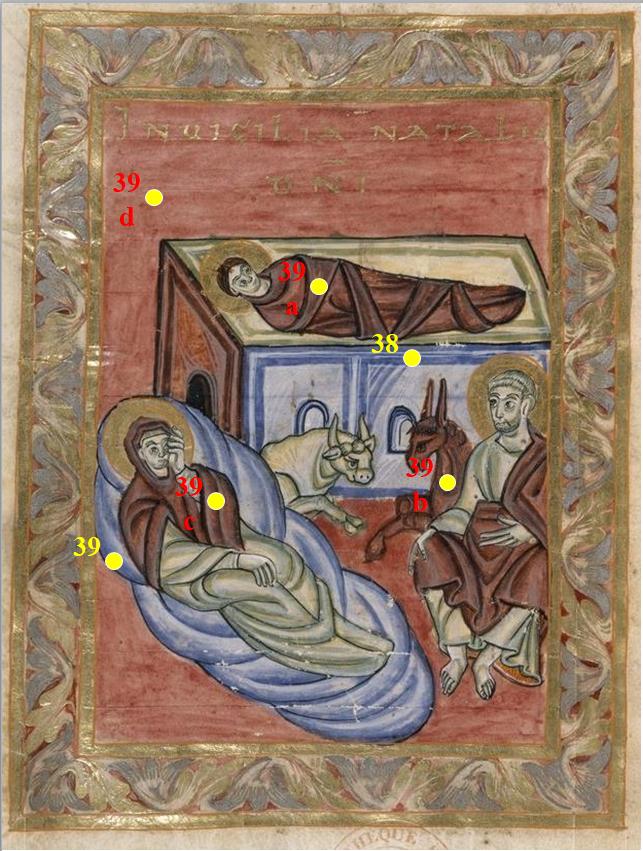 IN VIGILIA NATALIS
DNI
39
d
39
a
38
39
b
39
c
39
HEQUE